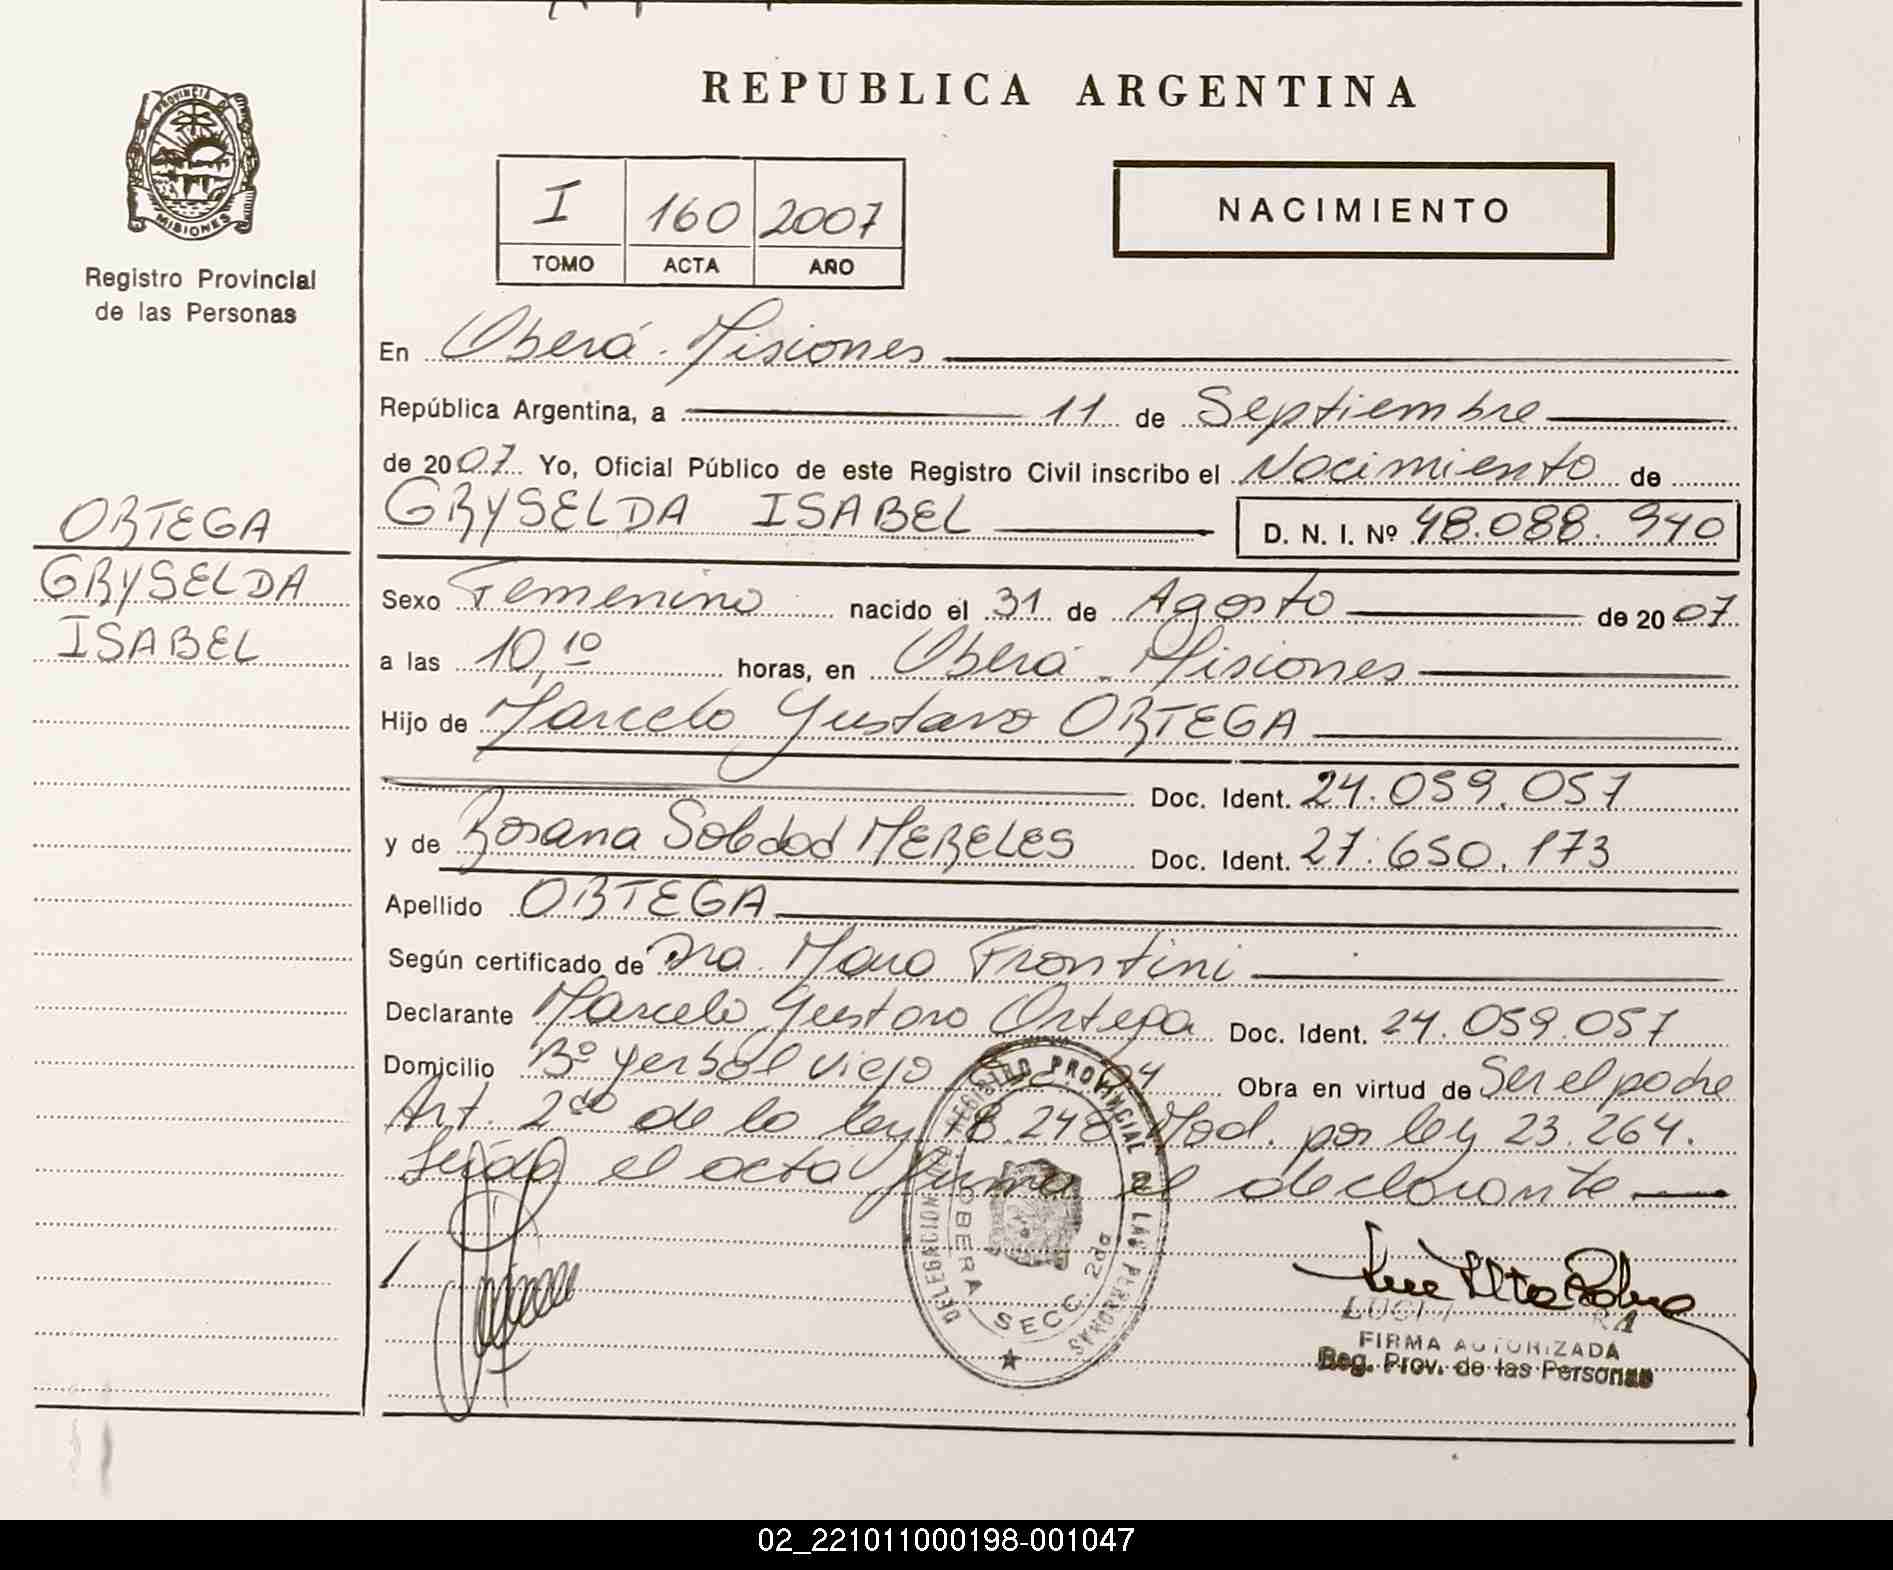 REPUBLICA ARGENTINA
PROVINCIA D
MISIONES
Registro Provincial
de las Personas
I 160 2007
TOMO ACTA AÑO
NACIMIENTO
En Oberá - Misiones
República Argentina, a 11 de Septiembre
de 2007. Yo, Oficial Público de este Registro Civil inscribo el Nacimiento de
GRYSELDA ISABEL D. N. I. Nº 48.088.940
ORTEGA
GRYSELDA
ISABEL
Sexo Femenino nacido el 31 de Agosto de 2007.
a las 10,10 horas, en Oberá - Misiones
Hijo de Marcelo Gustavo ORTEGA
Doc. Ident. 24.059.057
y de Rosana Soledad MERELES Doc. Ident. 27.650.173
Apellido ORTEGA
Según certificado de Dra. Mara Frontini
Declarante Marcelo Gustavo Ortega Doc. Ident. 24.059.057
Domicilio Bº Yerbal Viejo 94 Obra en virtud de Ser el padre
Art. 2do de la ley 18.248 Mod. por ley 23.264.
Leída el acta firma el declarante
DELEGACION DEL REGISTRO PROVINCIAL DE LAS PERSONAS
OBERA SECC. 2da
FIRMA AUTORIZADA
Reg. Prov. de las Personas
02_221011000198-001047